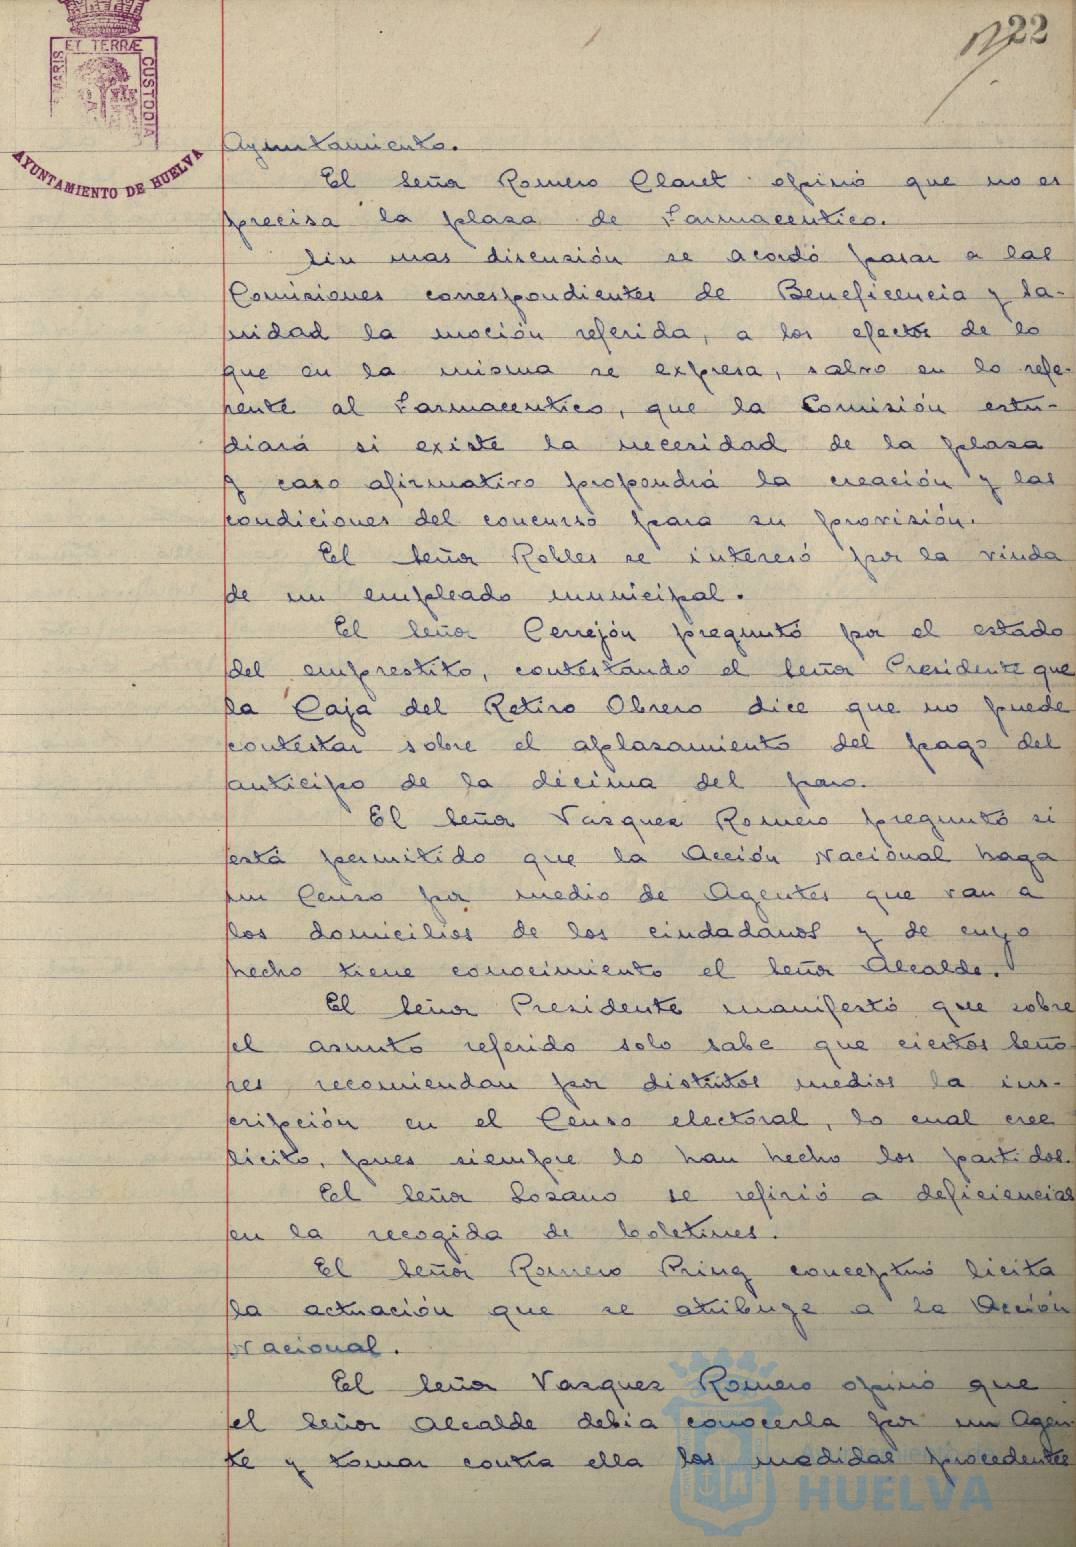 22
MARIS ET TERRÆ CUSTODIA
AYUNTAMIENTO DE HUELVA
Ayuntamiento.
El Señor Romero Claret opinó que no es
precisa la plaza de Farmaceutico.
Sin mas discusión se acordó pasar a las
Comisiones correspondientes de Beneficencia y Sa-
nidad la moción referida, a los efectos de lo
que en la misma se expresa, salvo en lo refe-
rente al Farmaceutico, que la Comisión estu-
diará si existe la necesidad de la plaza
y caso afirmativo propondrá la creación y las
condiciones del concurso para su provisión.
El Señor Robles se interesó por la viuda
de un empleado municipal.
El Señor Cerrejón preguntó por el estado
del emprestito, contestando el Señor Presidente que
la Caja del Retiro Obrero dice que no puede
contestar sobre el aplasamiento del pago del
anticipo de la décima del paro.
El Señor Vasquez Romero preguntó si
está permitido que la Acción Nacional haga
un Censo por medio de Agentes que van a
los domicilios de los ciudadanos y de cuyo
hecho tiene conocimiento el Señor Alcalde.
El Señor Presidente manifestó que sobre
el asunto referido solo sabe que ciertos Seño
res recomiendan por distintos medios la ins-
cripción en el Censo electoral, lo cual cree
licito, pues siempre lo han hecho los partidos.
El Señor Lozano se refirió a deficiencias
en la recogida de boletines.
El Señor Romero Pring conceptuó licita
la actuación que se atribuye a la Acción
Nacional.
El Señor Vasquez Romero opinó que
el Señor Alcalde debia conocerla por un Agen-
te y tomar contra ella las medidas procedentes
HUELVA